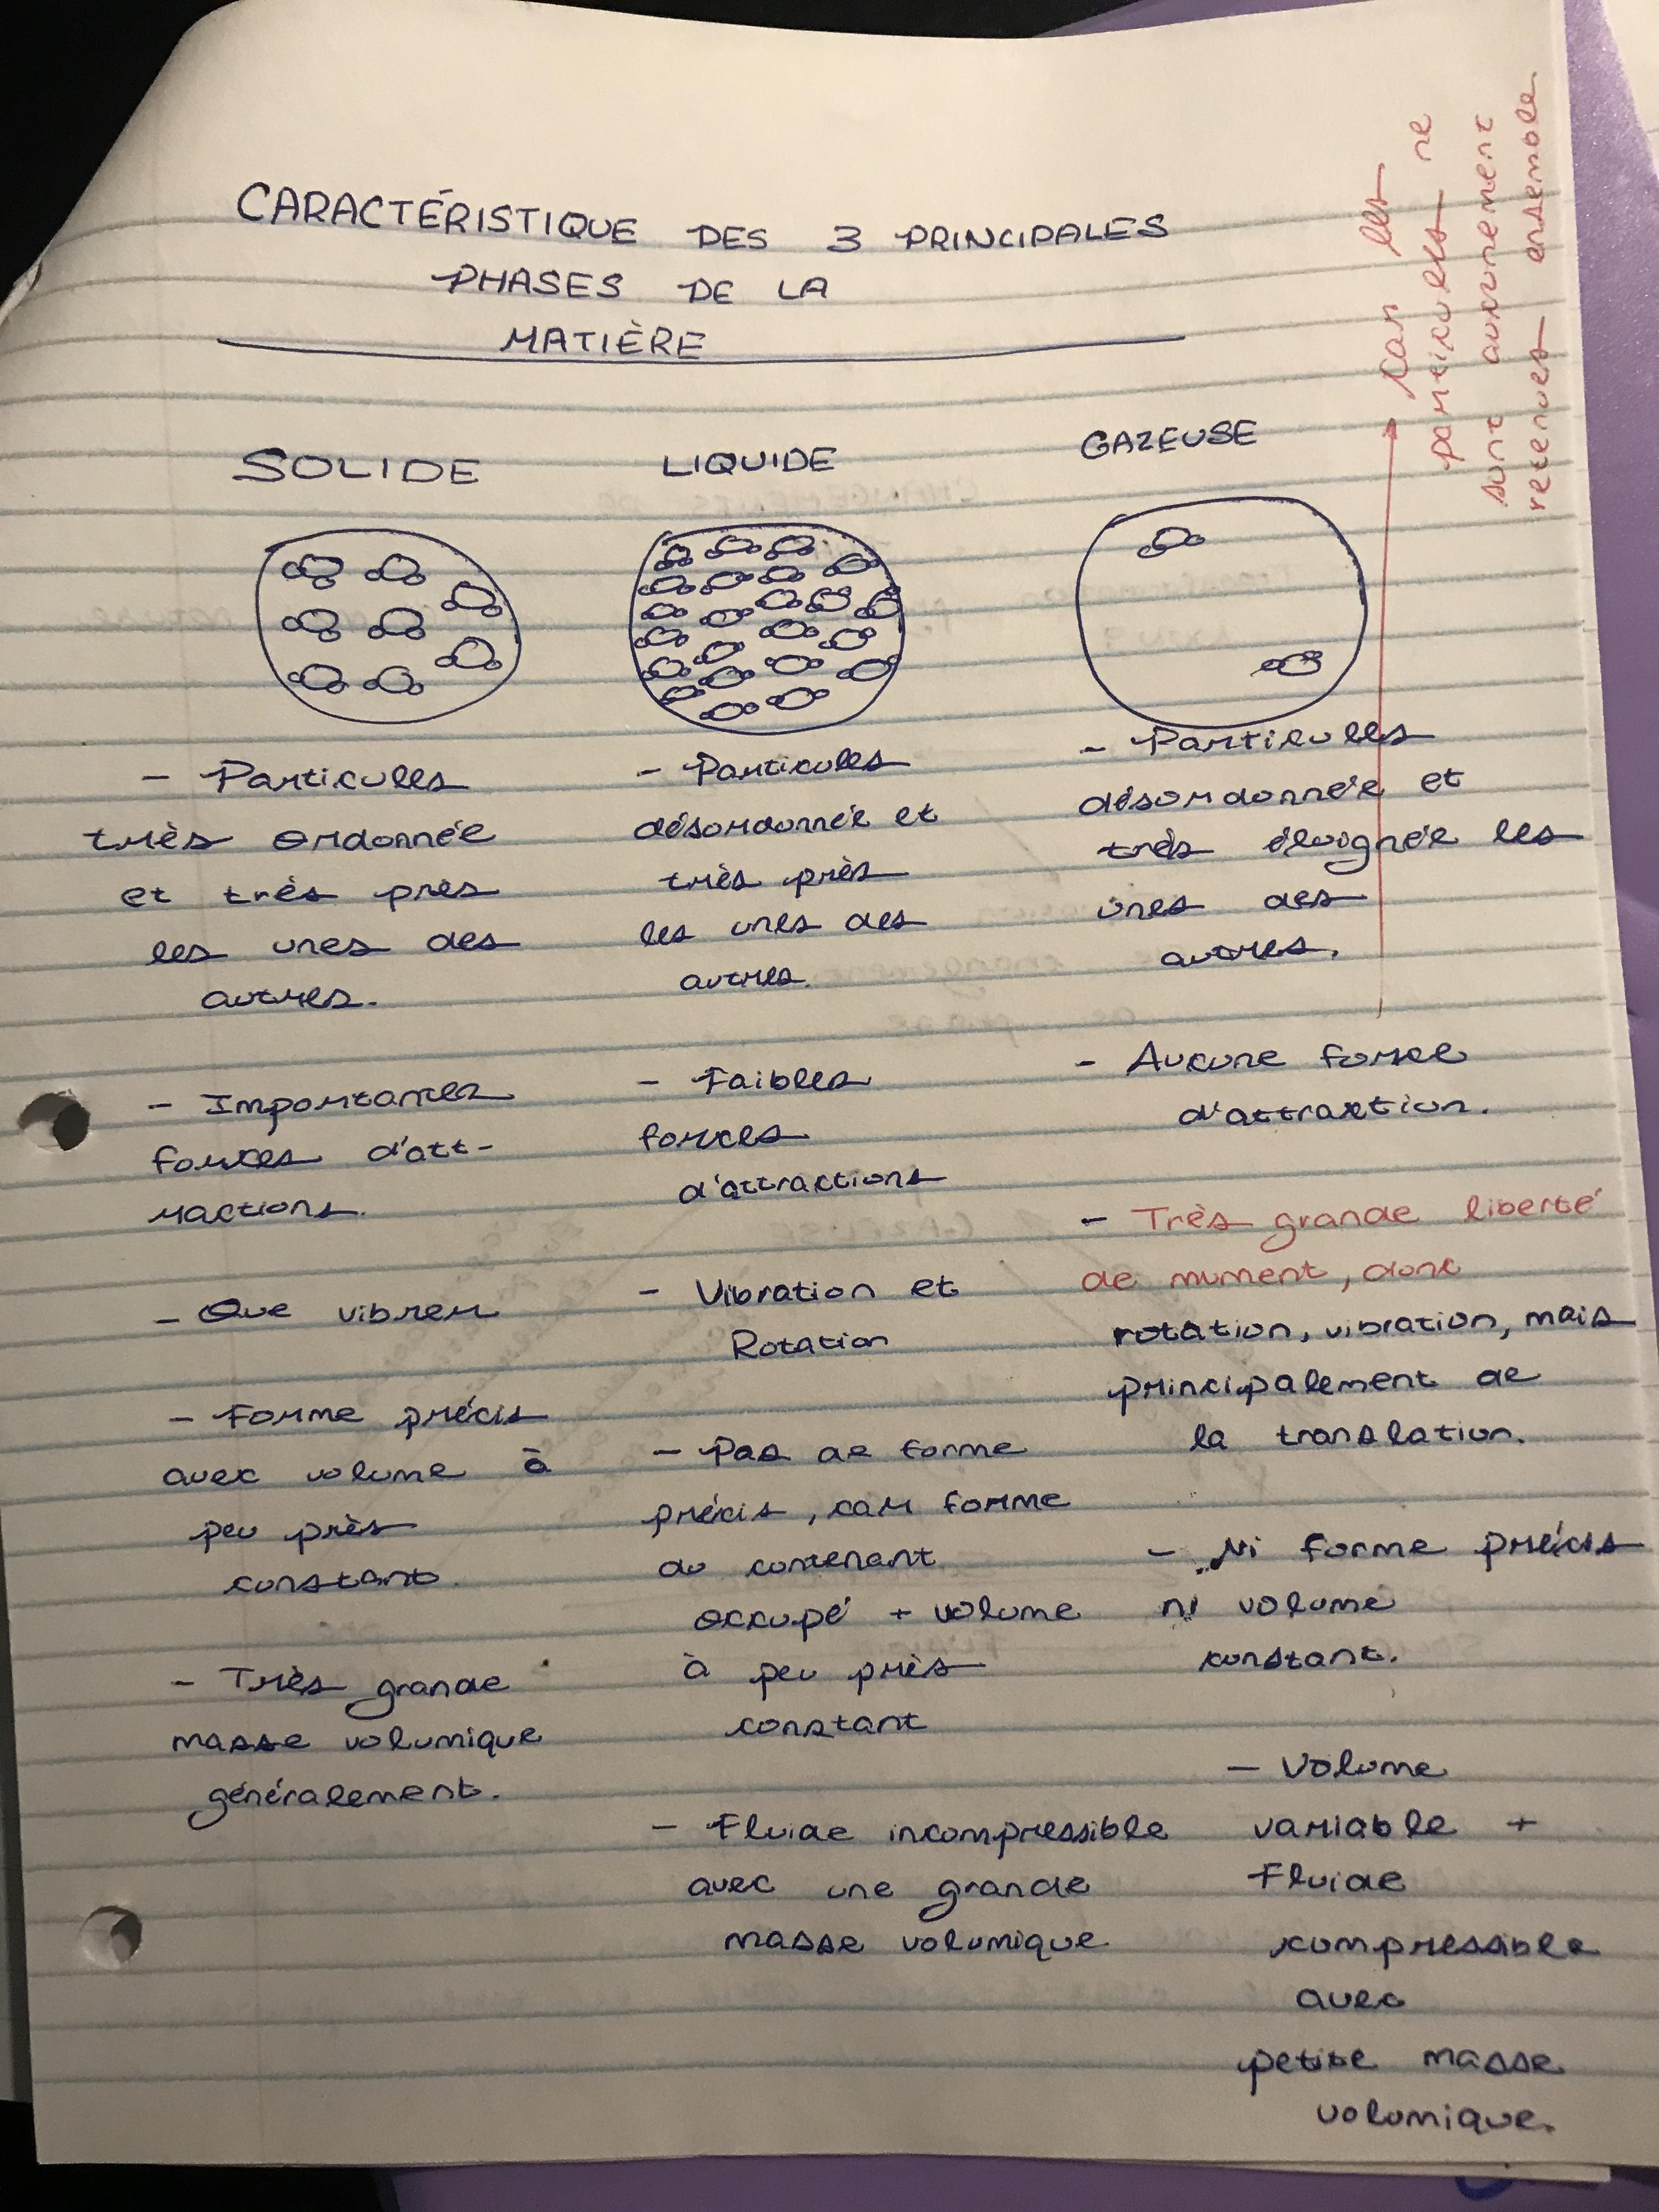 CARACTÉRISTIQUE DES 3 PRINCIPALES
PHASES DE LA
MATIÈRE
SOLIDE
- Particules
très ordonnée
et très près
les unes des
autres.
- Importantes
forces d'att-
ractions.
- Que vibrer
- Forme précis
avec volume à
peu près
constant.
- Très grande
masse volumique
généralement.
LIQUIDE
- Particules
désordonnée et
très près
les unes des
autres.
- Faibles
forces
d'attractions
- Vibration et
Rotation
- Pas de forme
précis, car forme
du contenant
occupé + volume
à peu près
constant
- Fluide incompressible
avec une grande
masse volumique
GAZEUSE
- Particules
désordonnée et
très éloignée les
unes des
autres.
- Aucune force
d'attraction.
car les
particules ne
sont aucunement
retenues ensemble
- Très grande liberté
de mument, donc
rotation, vibration, mais
principalement de
la translation.
- Ni forme précis
ni volume
constant.
- Volume
variable +
Fluide
compressible
avec
petite masse
volumique.